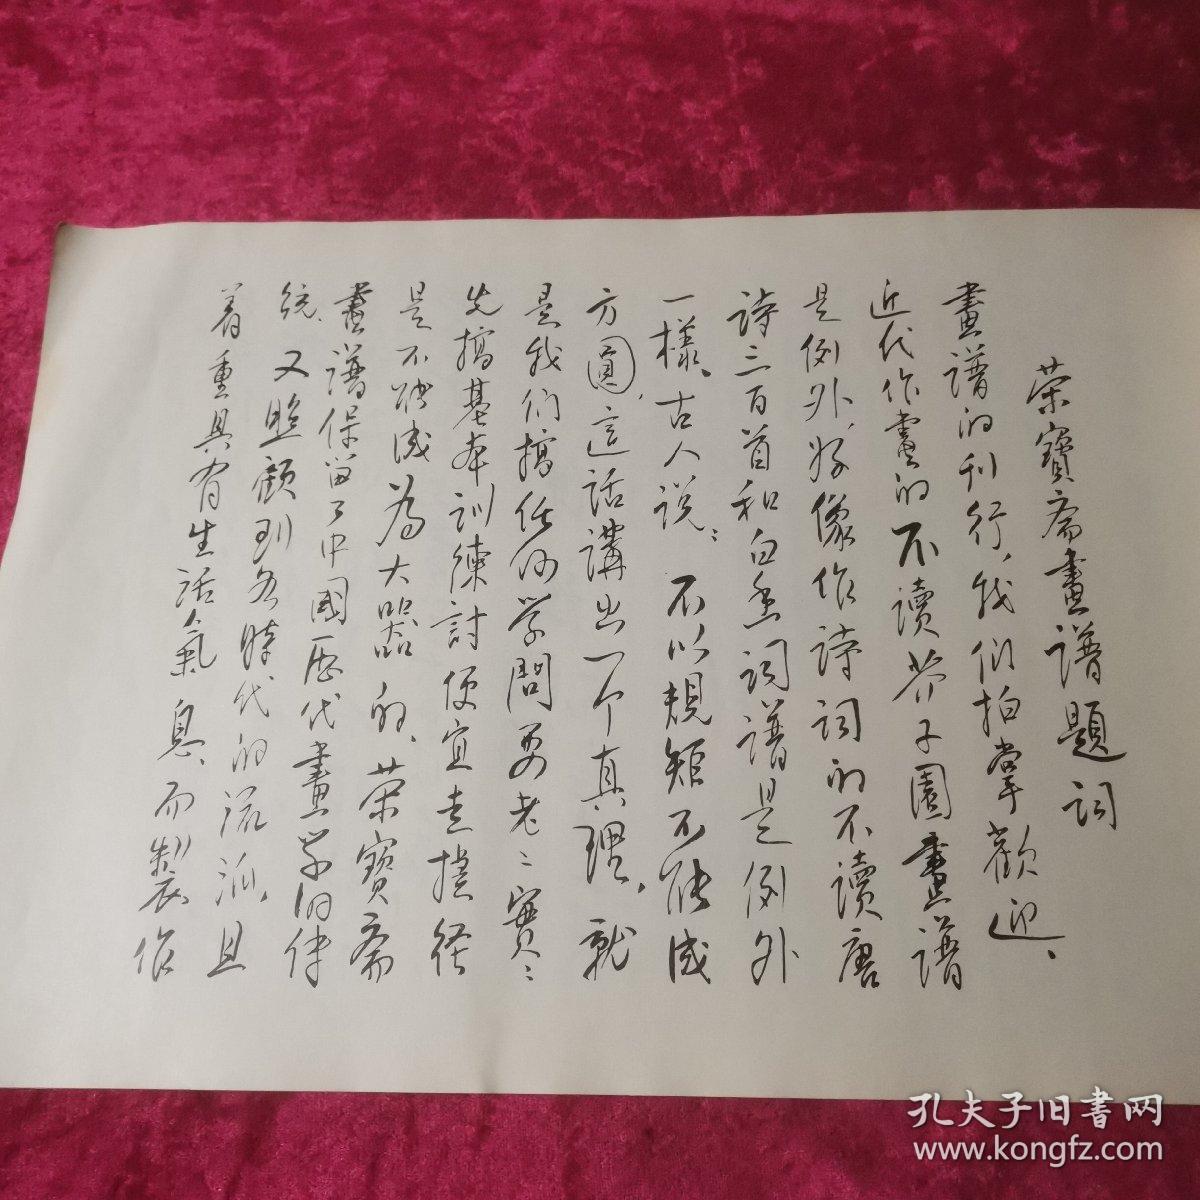 荣寶斋畫譜題詞
畫譜的刊行，我们拍掌歡迎、
近代作畫的不讀芥子園畫譜
是例外，好像作詩詞的不讀唐
詩三百首和白香词譜是例外
一樣、古人説：不以規矩不能成
方圓，這話講出一个真理，就
是我们搞任何学問要老〻實〻
先搞基本訓練討便宜走捷径
是不能成為大器的、荣寶斋
畫譜保留了中國历代畫学的传
统、又照顧到各時代的流派，且
着重具有生活氣息、而製作
孔夫子旧書网
www.kongfz.com